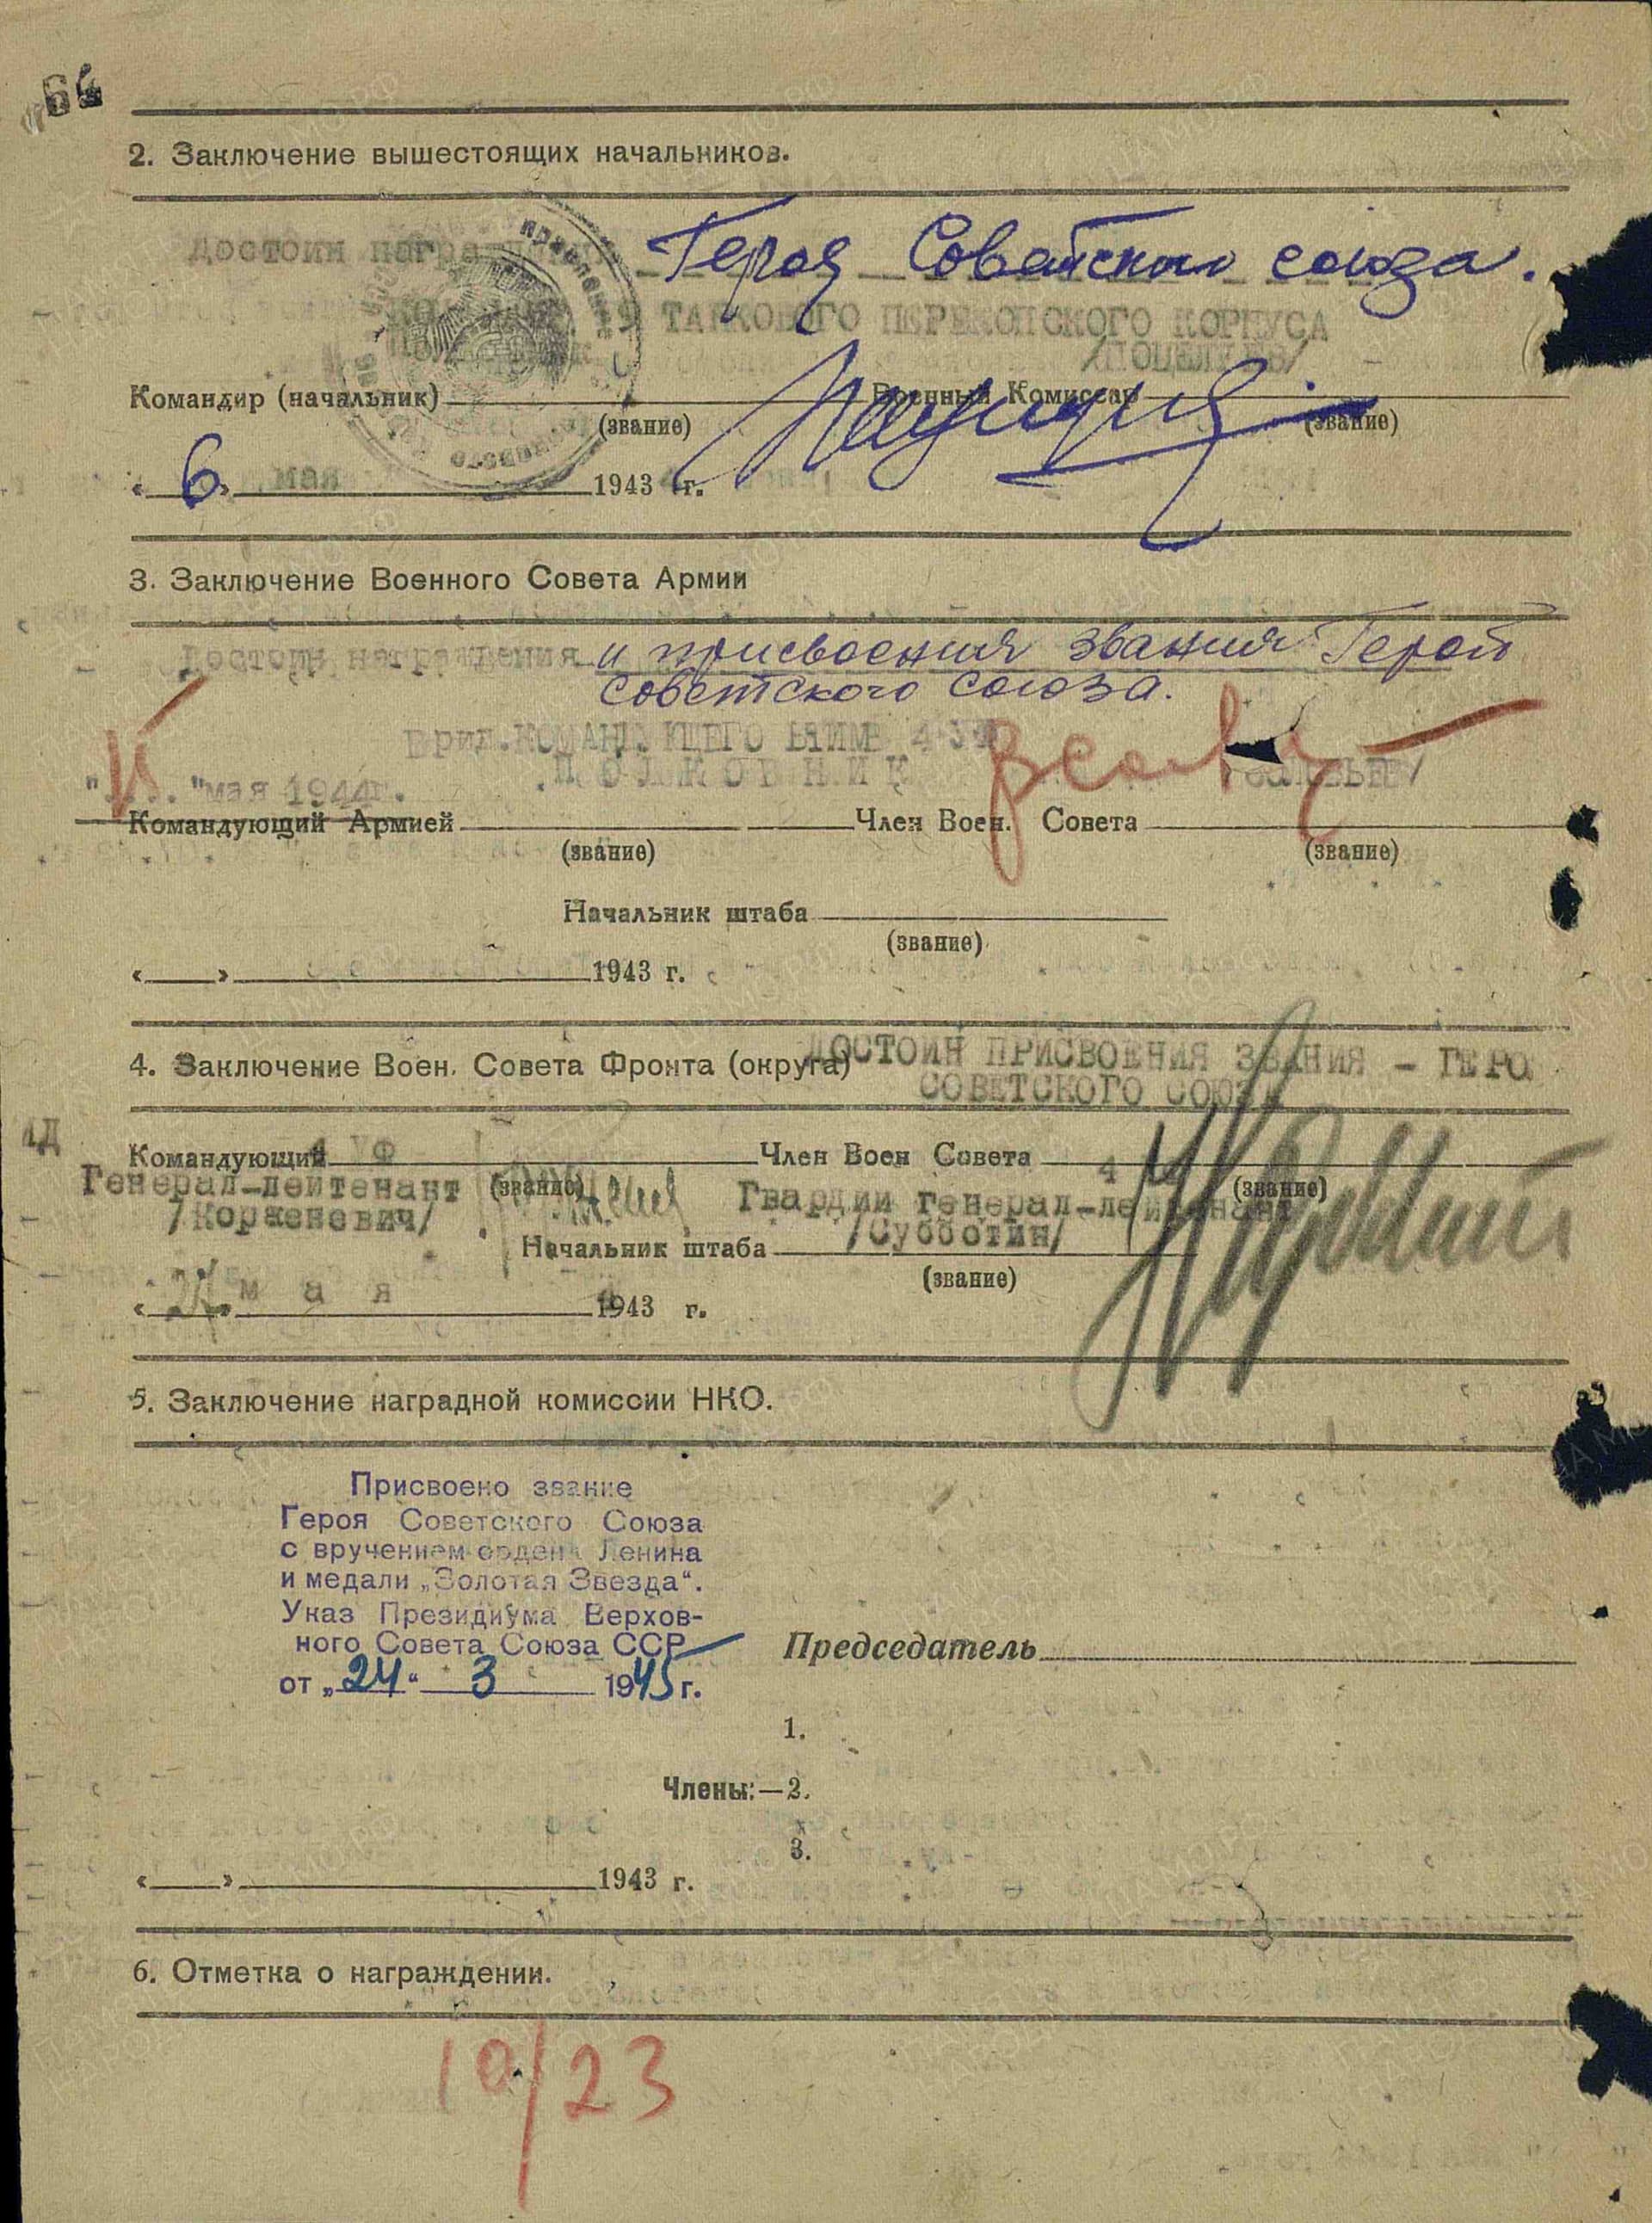 64
2. Заключение вышестоящих начальников.
Достоин награждения Героя Советского союза.
КОМАНДИР 19 ТАНКОВОГО ПЕРЕКОПСКОГО КОРПУСА
/ПОЦЕЛУЕВ/
Командир (начальник) Военный Комиссар
(звание) (звание)
« 6 » мая 1943 г.
3. Заключение Военного Совета Армии
Достоин награждения и присвоения звания Герой
Советского Союза.
Врид.КОМАНДУЮЩЕГО БТИМВ 4 УФ
ПОЛКОВНИК
"...."мая 1944г.
Командующий Армией Член Воен. Совета
(звание) (звание)
Начальник штаба
(звание)
« » 1943 г.
4. Заключение Воен. Совета Фронта (округа) ДОСТОИН ПРИСВОЕНИЯ ЗВАНИЯ - ГЕРО
СОВЕТСКОГО СОЮЗА
Командующий 4 УФ Член Воен Совета 4
Генерал-лейтенант (звание) Гвардии генерал-лейтенант (звание)
/Корженевич/ /Субботин/
Начальник штаба
(звание)
« » мая 1943 г.
5. Заключение наградной комиссии НКО.
Присвоено звание
Героя Советского Союза
с вручением ордена Ленина
и медали „Золотая Звезда“.
Указ Президиума Верхов-
ного Совета Союза ССР
от „24“ 3 1945 г.
Председатель
1.
Члены:—2.
3.
« » 1943 г.
6. Отметка о награждении.
10/23